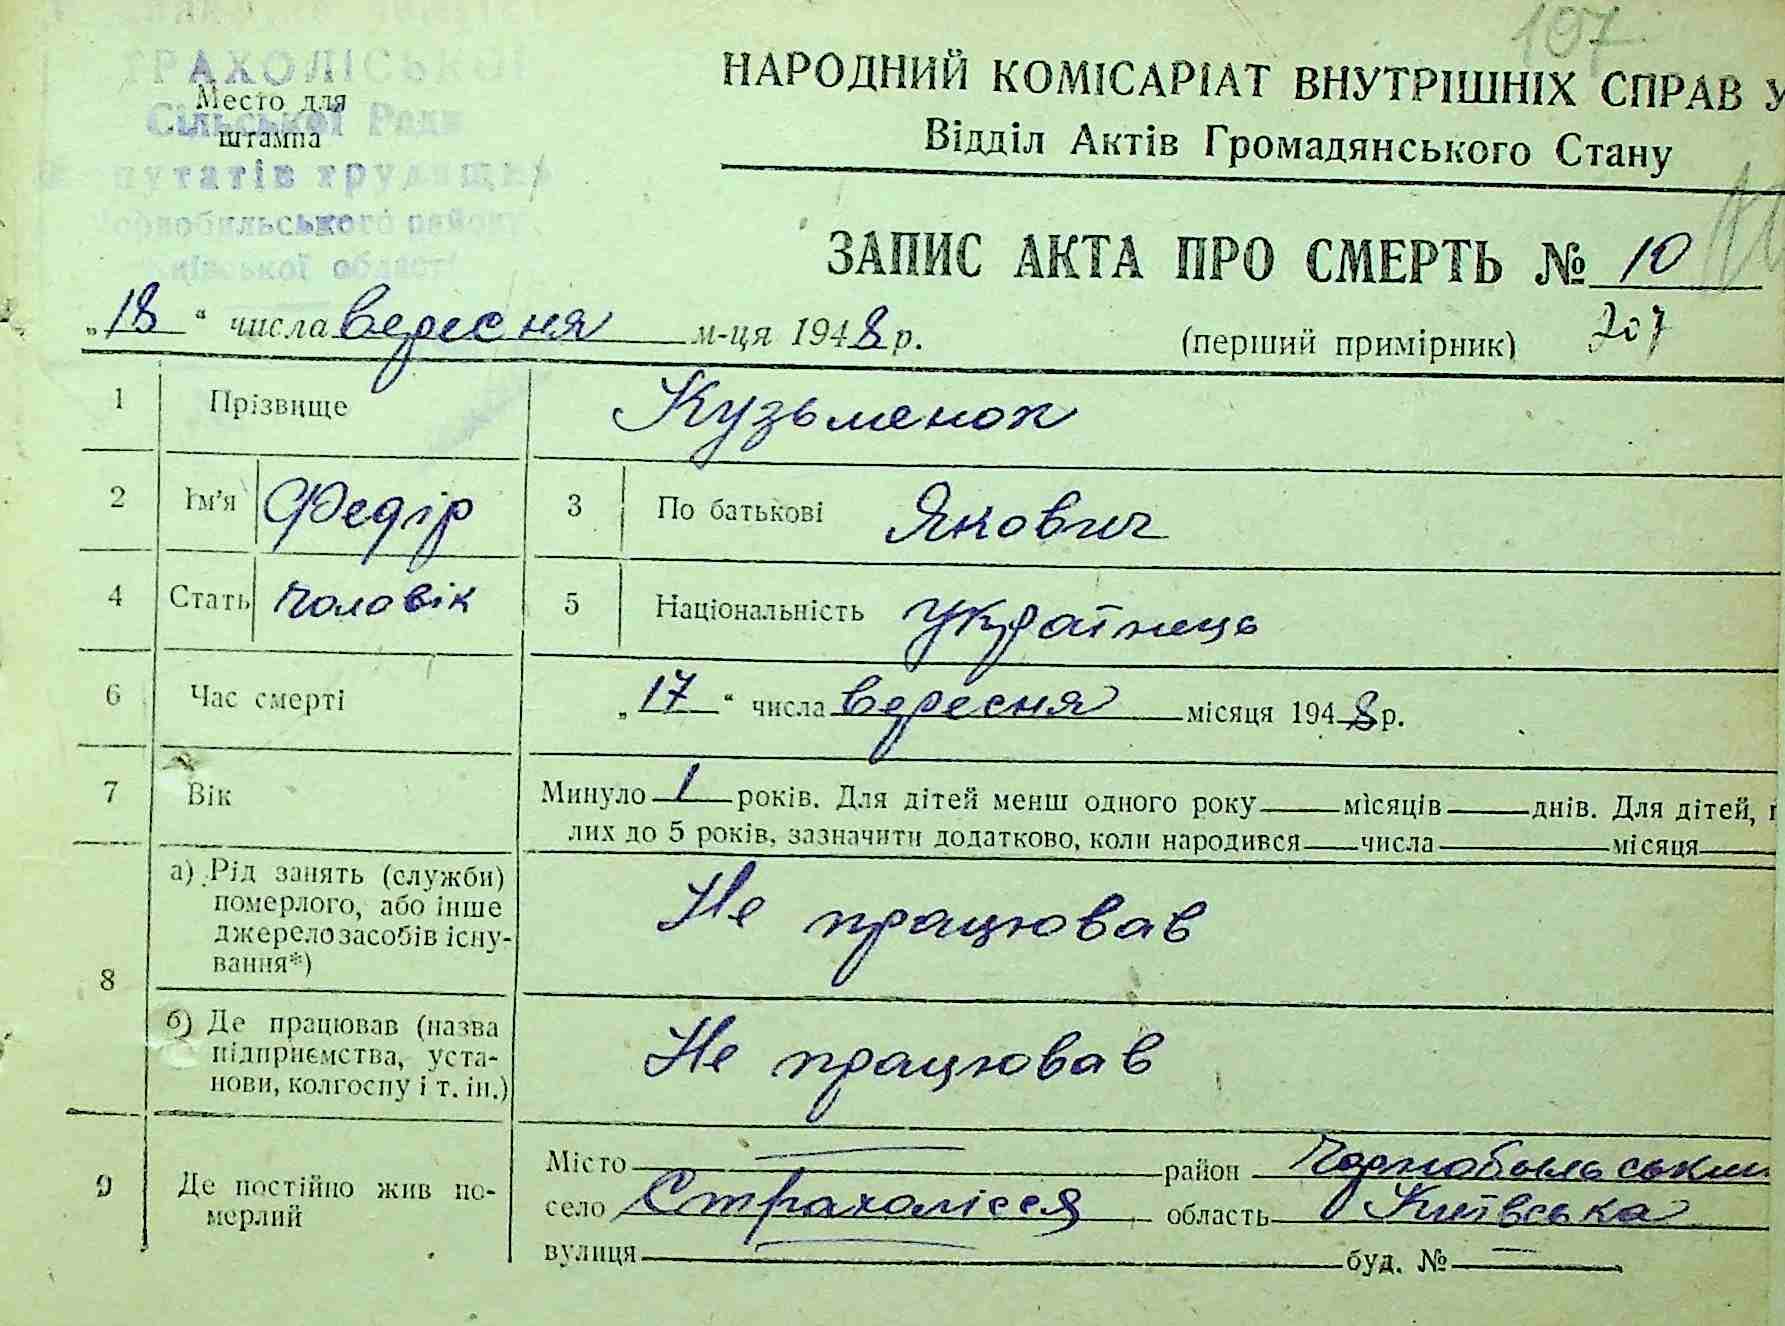 107
ТРАХОЛІСЬКОЇ
Место для
Сільської Ради
штампа
путатів трудящих
Чорнобильського району
Київської області
НАРОДНИЙ КОМІСАРІАТ ВНУТРІШНІХ СПРАВ У
Відділ Актів Громадянського Стану
ЗАПИС АКТА ПРО СМЕРТЬ № 10
„18“ числа вересня м-ця 1948 р. (перший примірник) 207
1 Прізвище Кузьменок
2 Ім'я Федір 3 По батькові Якович
4 Стать чоловік 5 Національність українець
6 Час смерті „17“ числа вересня місяця 1948 р.
7 Вік Минуло 1 років. Для дітей менш одного року місяців днів. Для дітей,
лих до 5 років, зазначити додатково, коли народився числа місяця
8 а) Рід занять (служби)
померлого, або інше
джерело засобів існу-
вання*)
Не працював
б) Де працював (назва
підприємства, уста-
нови, колгоспу і т. ін.)
Не працював
9 Де постійно жив по-
мерлий
Місто — район Чорнобыльський
село Страхолісся область Київська
вулиця — буд. № —